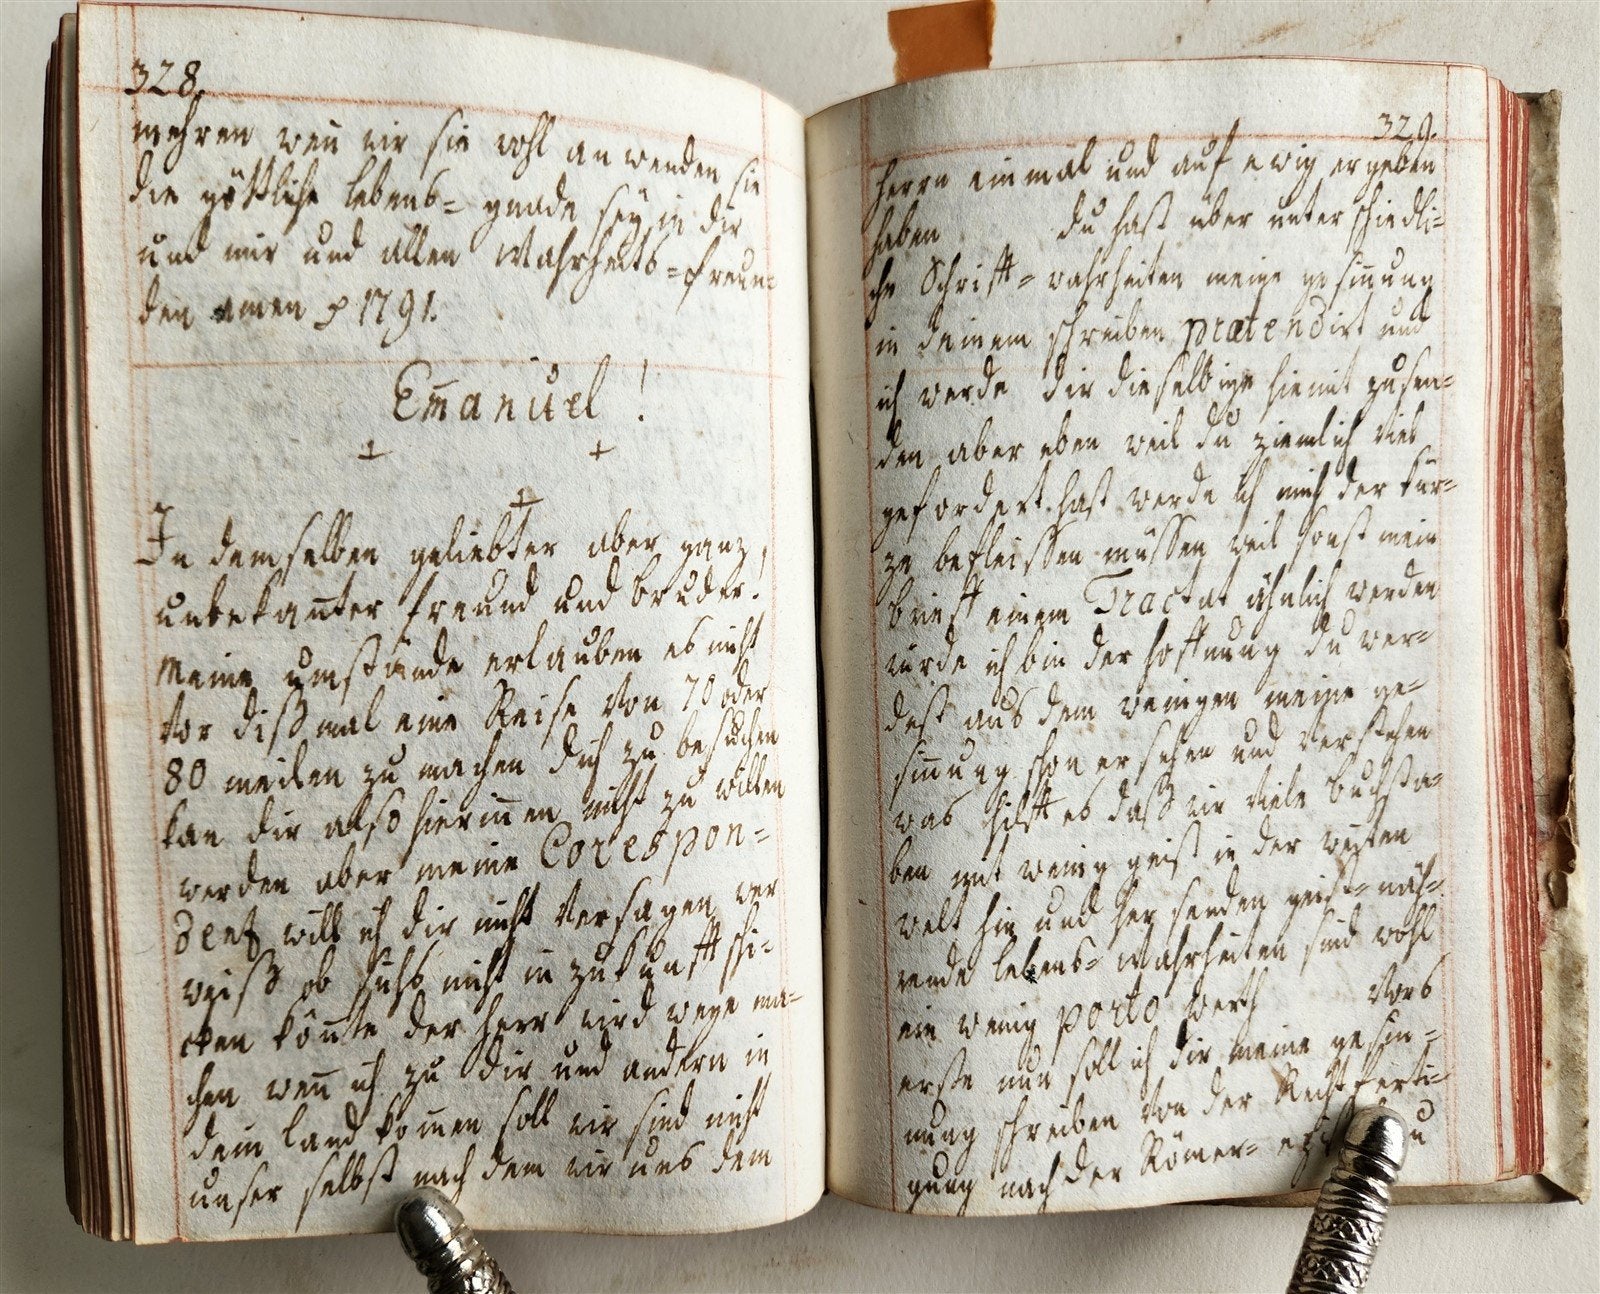 328.
mehren wen̄ wir sie wohl an wenden sie
die göttliche lebens= gnade seÿ in dir
und mir und allen Wahrheits=freun=
den amen 1791.
Em̄anüel !
In demselben geliebter aber ganz
unbekan̄ter freund und bruder!
Meine umstände erlauben es nicht
vor dißmal eine Reise von 70 oder
80 meilen zu machen dich zu besuchen
kan dir also hierin̄en nicht zu willen
werden aber meine Corespon=
denz will ich dir nicht versagen wer
weiß ob sichs nicht in zukunfft schi=
cken kön̄te der herr wird wege ma=
chen wen̄ ich zu dir und andern in
dein land kom̄en soll wir sind nicht
unser selbst nach dem wir uns dem
329.
herrn einmal und auf ewig ergeben
haben du hast über unterschiedli=
che Schrifft=wahrheiten meine gesin̄ung
in deinem schreiben prætendirt und
ich werde dir dieselbige hiemit zusen=
den aber eben weil du ziemlich viel
gefordert hast werde ich mich der kür=
ze befleissen müssen weil sonst mein
brieff einem Tractat ähnlich werden
würde ich bin der hoffnung du wer=
dest aus dem wenigen meine ge=
sin̄ung schon ersehen und verstehen
was hilfft es daß wir viele buchsta=
ben mit wenig geist in der weiten
welt hin und her senden geist= näh=
rende lebens= Wahrheiten sind wohl
ein wenig porto werth vors
erste nun soll ich dir meine gesin=
nung schreiben von der Rechtferti=
gung nach der Römer=